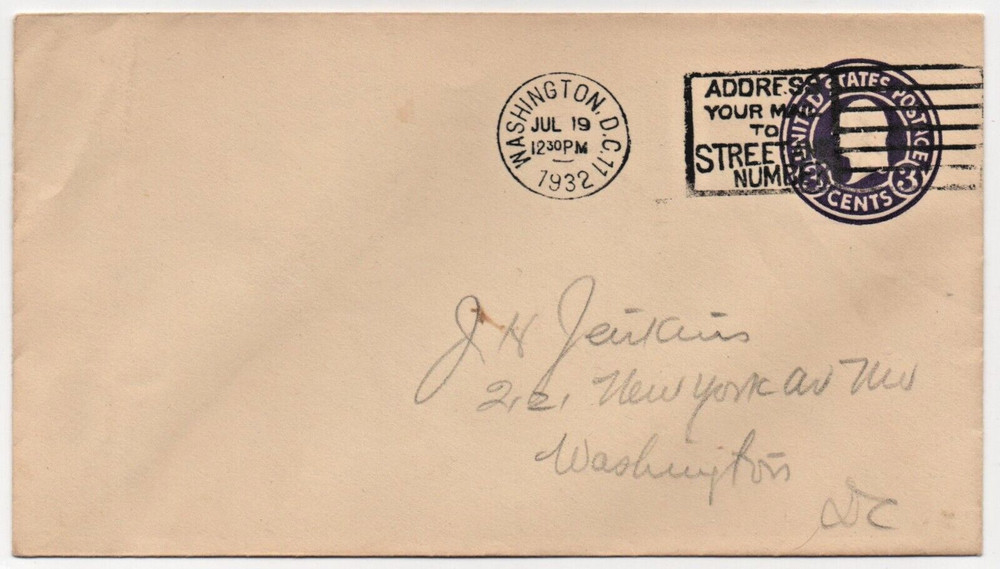 WASHINGTON, D.C. 11
JUL 19
12 30 PM
1932
ADDRESS
YOUR MAIL
TO
STREET AND
NUMBER
UNITED STATES POSTAGE
3 CENTS 3
J H Jenkins
New York av NW
Washington
DC